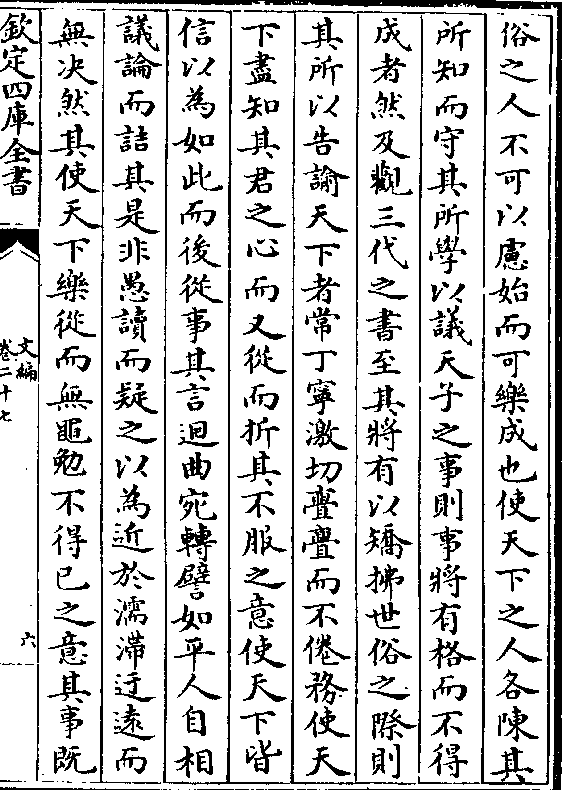 俗之人不可以慮始而可樂成也使天下之人各陳其
所知而守其所學以議天子之事則事將有格而不得
成者然及觀三代之書至其將有以矯拂世俗之際則
其所以告諭天下者常丁寧激切亹亹而不倦務使天
下盡知其君之心而又從而折其不服之意使天下皆
信以為如此而後從事其言迴曲宛轉譬如平人自相
議論而詰其是非愚讀而疑之以為近於濡滯迂逺而
無决然其使天下樂從而無黽勉不得已之意其事既
欽定四庫全書
文編
卷二十七
六